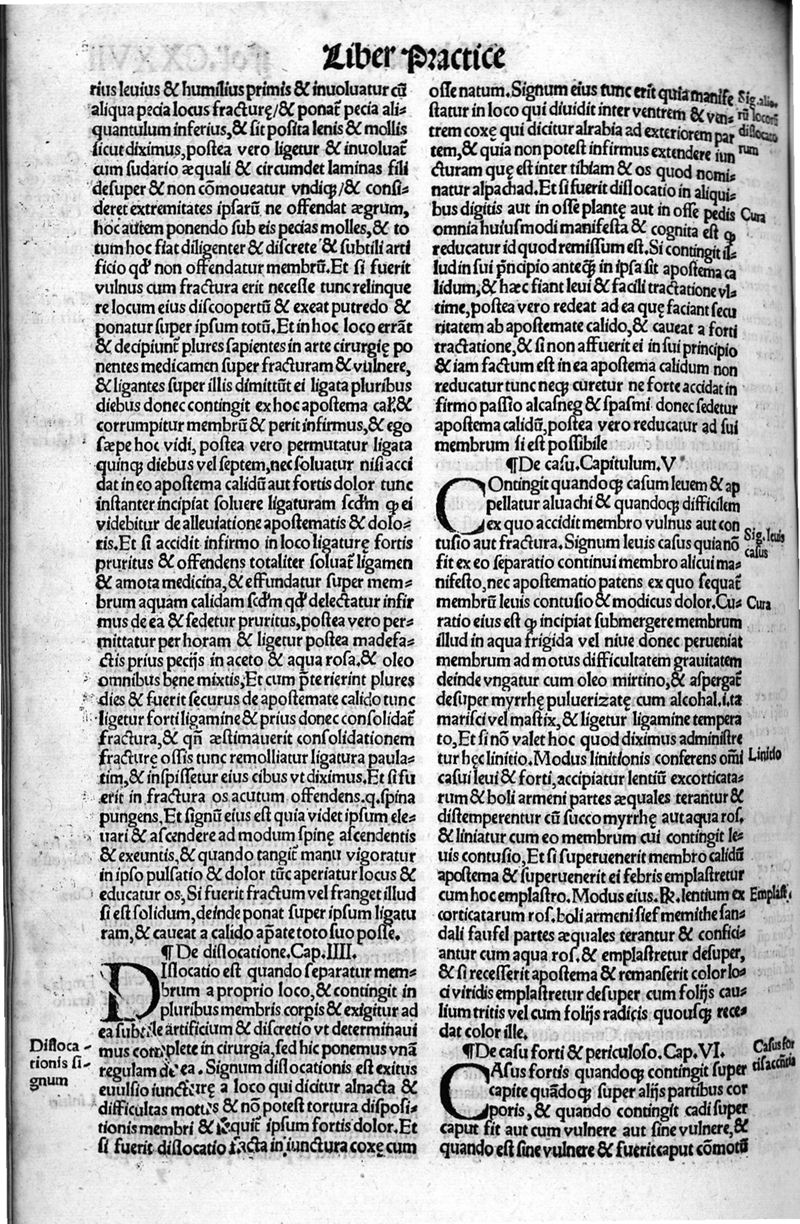 Liber Practice
rius leuius & humilius primis & inuoluatur cũ
aliqua pecia locus fracturę/& ponat̃ pecia ali-
quantulum inferius,& sit posita lenis & mollis
sicut diximus, postea vero ligetur & inuoluat̃
cum sudario æquali & circumdet laminas fili
desuper & non cõmoueatur vndiqꝫ/& consi-
deret extremitates ipsarũ ne offendat ægrum,
hoc autem ponendo sub eis pecias molles, & to
tum hoc fiat diligenter & discrete & subtili arti
ficio qđ non offendatur membrũ. Et si fuerit
vulnus cum fractura erit necesse tunc relinque
re locum eius discoopertũ & exeat putredo &
ponatur super ipsum totũ. Et in hoc loco errãt
& decipiunt̃ plures sapientes in arte cirurgię po
nentes medicamen super fracturam & vulnere,
& ligantes super illis dimittũt ei ligata pluribus
diebus donec contingit ex hoc apostema cal̃.&
corrumpitur membrũ & perit infirmus, & ego
sæpe hoc vidi, postea vero permutatur ligata
quinqꝫ diebus vel septem, nec soluatur nisi acci
dat in eo apostema calidũ aut fortis dolor tunc
instanter incipiat soluere ligaturam scđm ꝙ ei
videbitur de alleuiatione apostematis & dolo-
ris. Et si accidit infirmo in loco ligaturę fortis
pruritus & offendens totaliter soluat̃ ligamen
& amota medicina, & effundatur super mem-
brum aquam calidam scđm qđ delectatur infir
mus de ea & sedetur pruritus, postea vero per-
mittatur per horam & ligetur postea madefa-
ctis prius pecijs in aceto & aqua rosa. & oleo
omnibus bene mixtis, Et cum p̃terierint plures
dies & fuerit securus de apostemate calido tunc
ligetur forti ligamine & prius donec consolidat̃
fractura, & qñ æstimauerit consolidationem
fracturę ossis tunc remolliatur ligatura paula-
tim, & inspissetur eius cibus vt diximus. Et si fu
erit in fractura os acutum offendens.q. spina
pungens, Et signũ eius est quia videt ipsum ele-
uari & ascendere ad modum spinę ascendentis
& exeuntis, & quando tangit̃ manu vigoratur
in ipso pulsatio & dolor tũc aperiatur locus &
educatur os, Si fuerit fractum vel franget illud
si est solidum, deinde ponat super ipsum ligatu
ram, & caueat a calido ap̃ate toto suo posse.
¶ De dislocatione. Cap. IIII.
DIslocatio est quando separatur mem-
brum a proprio loco, & contingit in
pluribus membris corpis & exigitur ad
ea subtile artificium & discretio vt determinaui
mus complete in cirurgia, sed hic ponemus vnã
regulam de ea. Signum dislocationis est exitus
euulsio iuncturę a loco qui dicitur alnacta &
difficultas motus & nõ potest tortura disposi-
tionis membri & sequit̃ ipsum fortis dolor. Et
si fuerit dislocatio facta in iunctura coxę cum
Disloca-
tionis si-
gnum
osse natum. Signum eius tunc erit quia manife
statur in loco qui diuidit inter ventrem & ven-
trem coxę qui dicitur alrabia ad exteriorem par
tem, & quia non potest infirmus extendere iun
cturam quę est inter tibiam & os quod nomi-
natur alpachad. Et si fuerit dislocatio in aliqui-
bus digitis aut in osse plantę aut in osse pedis
omnia huiusmodi manifesta & cognita est ꝙ
reducatur id quod remissum est. Si contingit il-
lud in sui p̃ncipio anteqꝫ in ipsa sit apostema ca
lidum, & hæc fiant leui & facili tractatione vl-
time, postea vero redeat ad ea quę faciant secu
ritatem ab apostemate calido, & caueat a forti
tractatione, & si non affuerit ei in sui principio
& iam factum est in ea apostema calidum non
reducatur tunc neqꝫ curetur ne forte accidat in
firmo passio alcasneg & spasmi donec sedetur
apostema calidũ, postea vero reducatur ad sui
membrum si est possibile
¶De casu. Capitulum. V
COntingit quandoqꝫ casum leuem & ap
pellatur aluachi & quandoqꝫ difficilem
ex quo accidit membro vulnus aut con
tusio aut fractura. Signum leuis casus quia nõ
fit ex eo separatio continui membro alicui ma-
nifesto, nec apostematio patens ex quo sequat̃
membrũ leuis contusio & modicus dolor. Cu-
ratio eius est ꝙ incipiat submergere membrum
illud in aqua frigida vel niue donec perueniat
membrum ad motus difficultatem grauitatem
deinde vngatur cum oleo mirtino, & aspergat̃
desuper myrrhę puluerizatę cum alcohal.i.ta
marisci vel mastix, & ligetur ligamine tempera
to, Et si nõ valet hoc quod diximus administre
tur hęc linitio. Modus linitionis conferens om̃i
casui leui & forti, accipiatur lentiũ excorticata-
rum & boli armeni partes æquales terantur &
distemperentur cũ succo myrrhę aut aqua ros.
& liniatur cum eo membrum cui contingit le-
uis contusio, Et si superuenerit membro calidũ
apostema & superuenerit ei febris emplastretur
cum hoc emplastro. Modus eius. ℞. lentium ex
corticatarum ros. boli armeni sief memithe san-
dali faufel partes æquales terantur & confici-
antur cum aqua ros. & emplastretur desuper,
& si recesserit apostema & remanserit color lo-
ci viridis emplastretur desuper cum folijs cau-
lium tritis vel cum folijs radicis quousqꝫ rece-
dat color ille.
¶De casu forti & periculoso. Cap. VI.
CAsus fortis quandoqꝫ contingit super
capite quãdoqꝫ super alijs partibus cor
poris, & quando contingit cadi super
caput fit aut cum vulnere aut sine vulnere, &
quando est sine vulnere & fuerit caput cõmotũ
Sig. alio-
rũ locorũ
dislocato
rum
Cura
Sig. leuis
casus
Cura
Linitio
Emplast.
Casus for
tis accñtia